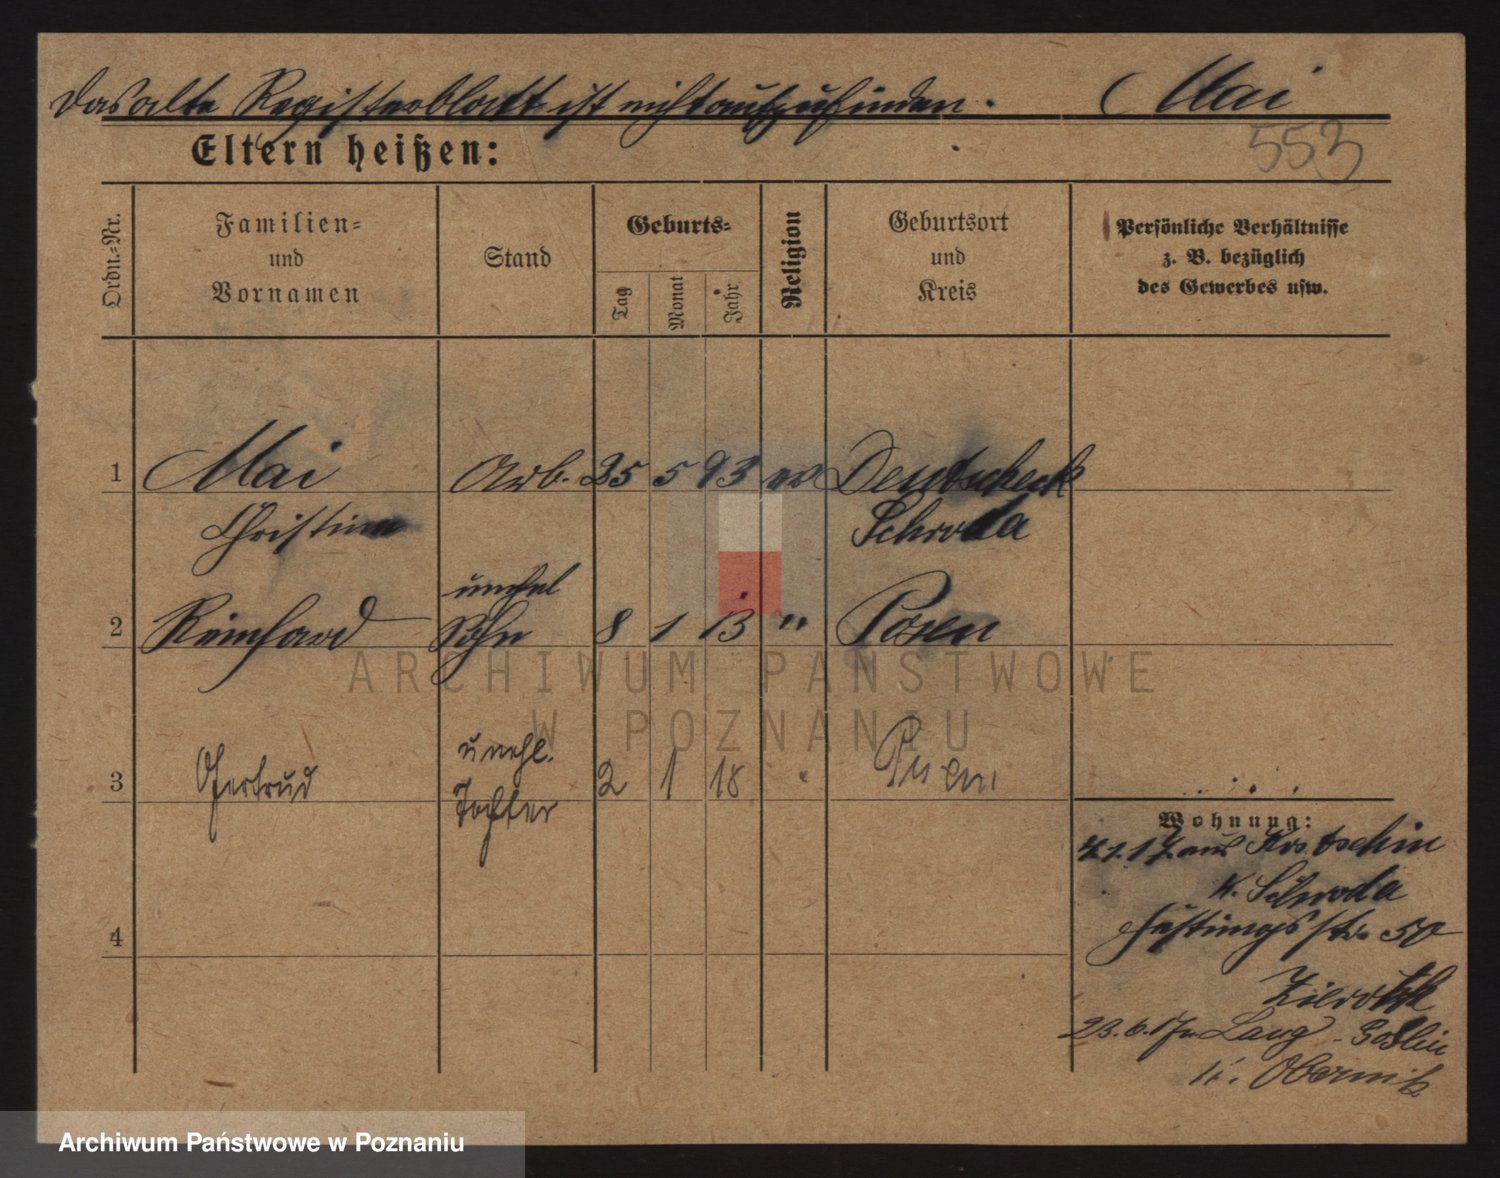 Das alte Registerblatt ist nicht aufzufinden. Mai
553
Eltern heißen:
Ordn.-Nr. Familien- und Vornamen Stand Geburts- Tag Monat Jahr Religion Geburtsort und Kreis Persönliche Verhältnisse z. B. bezüglich des Gewerbes usw.
1 Mai Arb. 25 5 93 ev Deutscheck
Christine Schroda
unehel
2 Reinhard Sohn 8 1 13 " Posen
unehl.
3 Gertrud Tochter 2 1 18 " Posen
Wohnung:
4.1.17 aus Kostschin
K. Schroda
4 Festungsstr. 50
23.6.17 n. Lang-Goslin
K. Obornik
ARCHIWUM PAŃSTWOWE
W POZNANIU
Archiwum Państwowe w Poznaniu